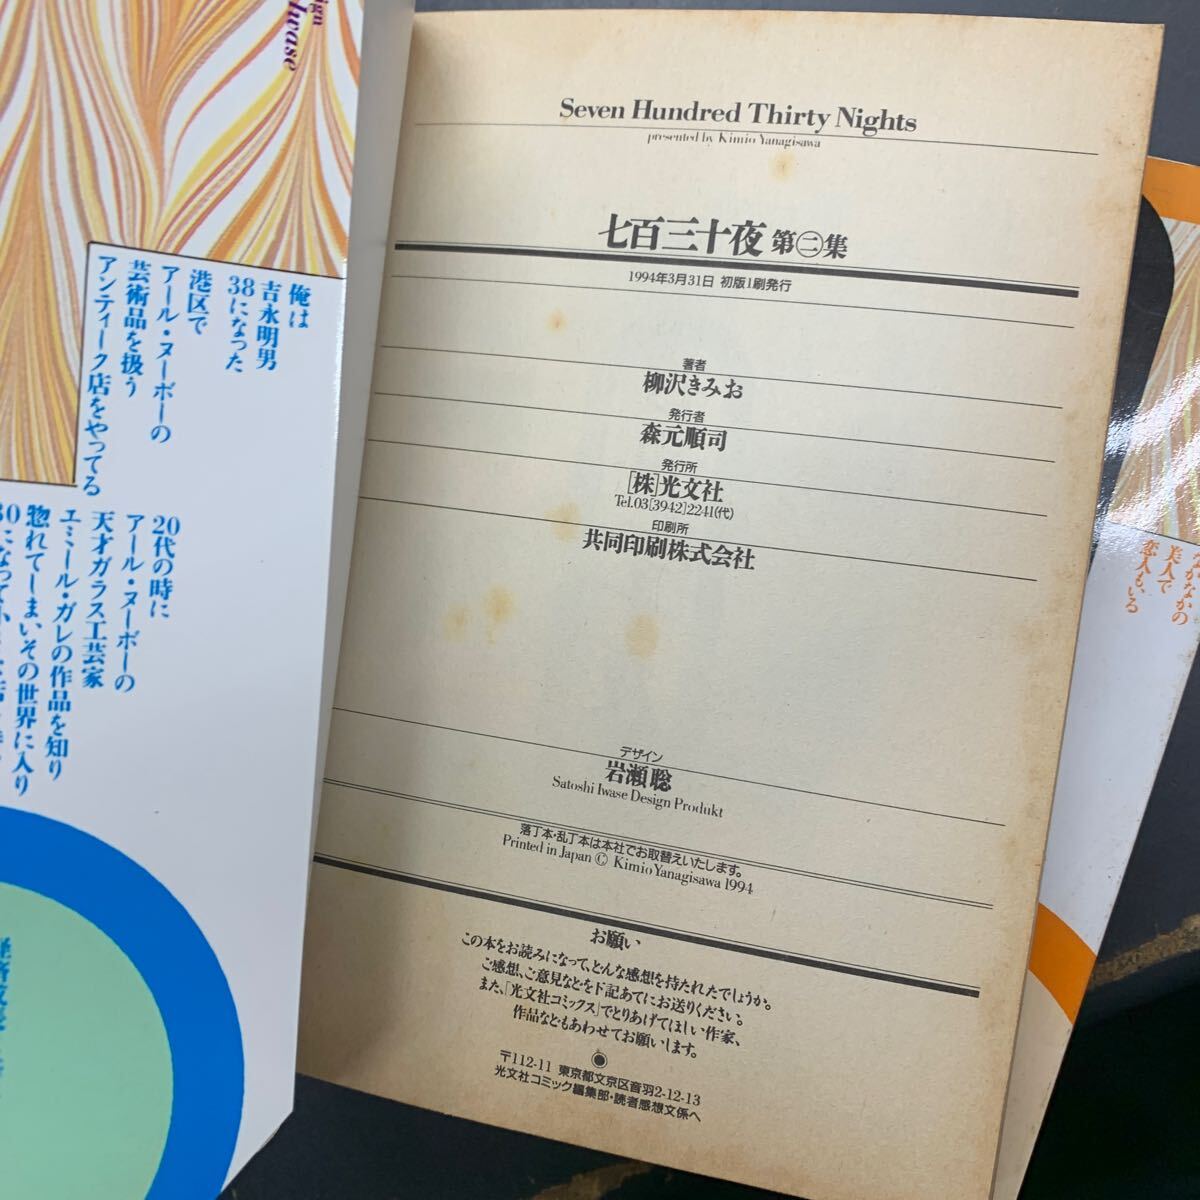 Seven Hundred Thirty Nights
presented by Kimio Yanagisawa
七百三十夜 第㊁集
1994年3月31日 初版1刷発行
著者
柳沢きみお
発行者
森元順司
発行所
[株]光文社
Tel.03[3942]2241(代)
印刷所
共同印刷株式会社
デザイン
岩瀬聡
Satoshi Iwase Design Produkt
落丁本・乱丁本は本社でお取替えいたします。
Printed in Japan © Kimio Yanagisawa 1994
お願い
この本をお読みになって、どんな感想を持たれたでしょうか。
ご感想、ご意見などを下記あてにお送りください。
また、「光文社コミックス」でとりあげてほしい作家、
作品などもあわせてお願いします。
〒112-11 東京都文京区音羽2-12-13
光文社コミック編集部・読者感想文係へ
俺は
吉永明男
38になった
港区で
アール・ヌーボーの
芸術品を扱う
アンティーク店をやってる
20代の時に
アール・ヌーボーの
天才ガラス工芸家
エミール・ガレの作品を知り
惚れてしまいその世界に入り
なかなかの
美人で
恋人も、いる